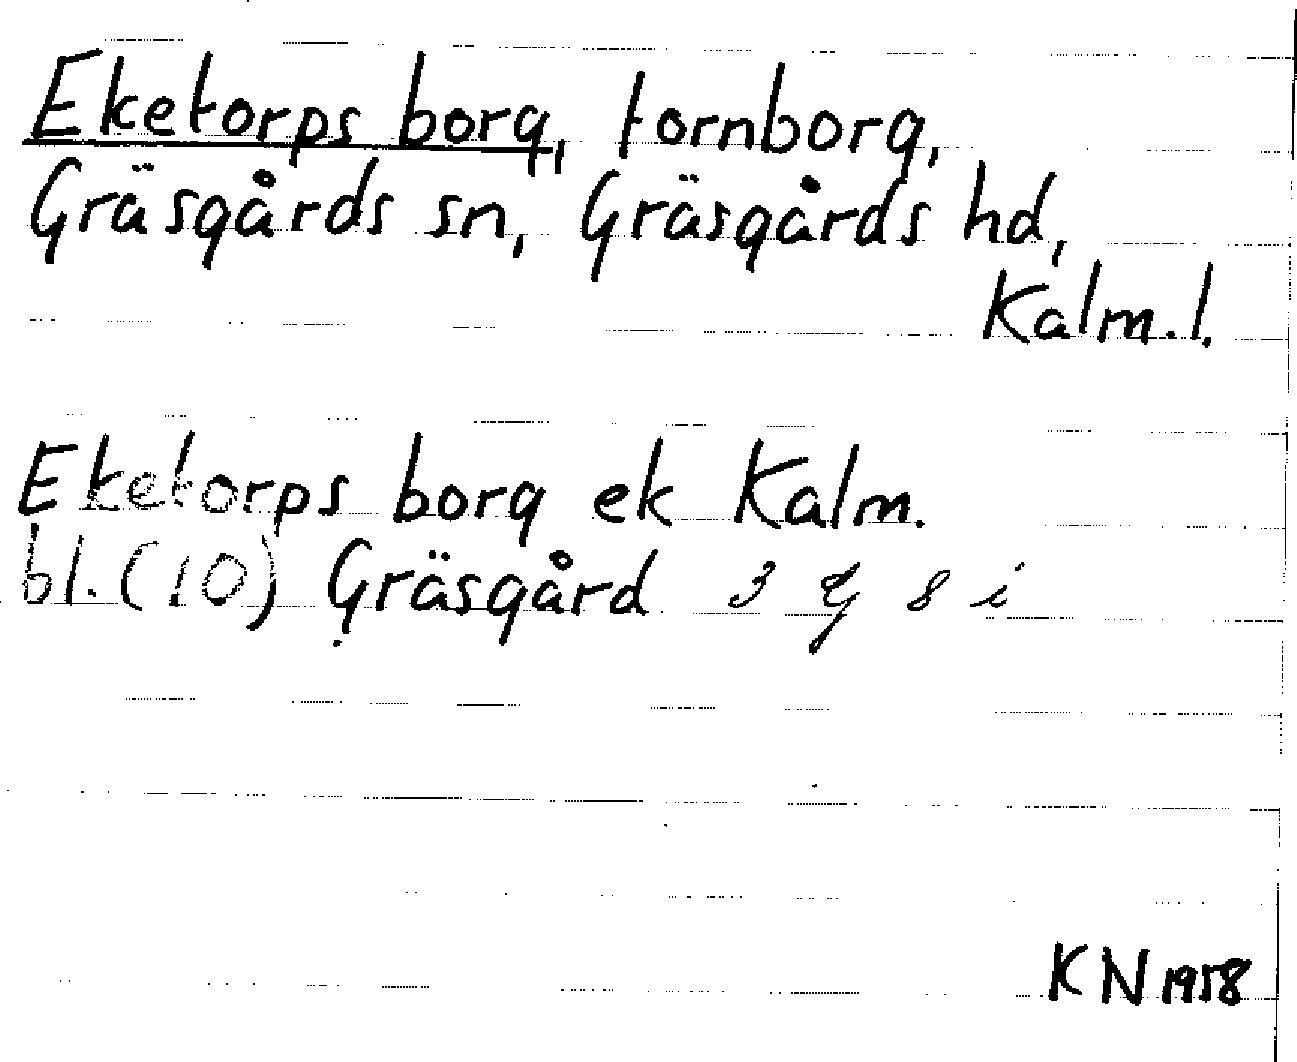 Eketorps borg, fornborg,
Gräsgårds sn, Gräsgårds hd,
Kalm.l.
Eketorps borg ek Kalm.
bl.(10) Gräsgård 3 G 8 i
KN 1958